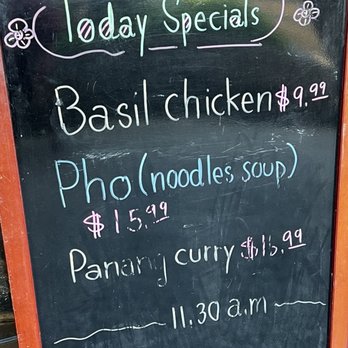 Today Specials
Basil chicken $9.99
Pho (noodles soup)
$15.99
Panang curry
11.30 a.m